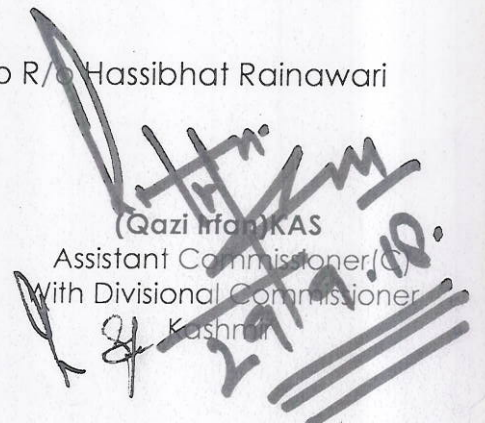 o R/o Hassibhat Rainawari
(Qazi Irfan)KAS
Assistant Commissioner(C)
With Divisional Commissioner
Kashmir